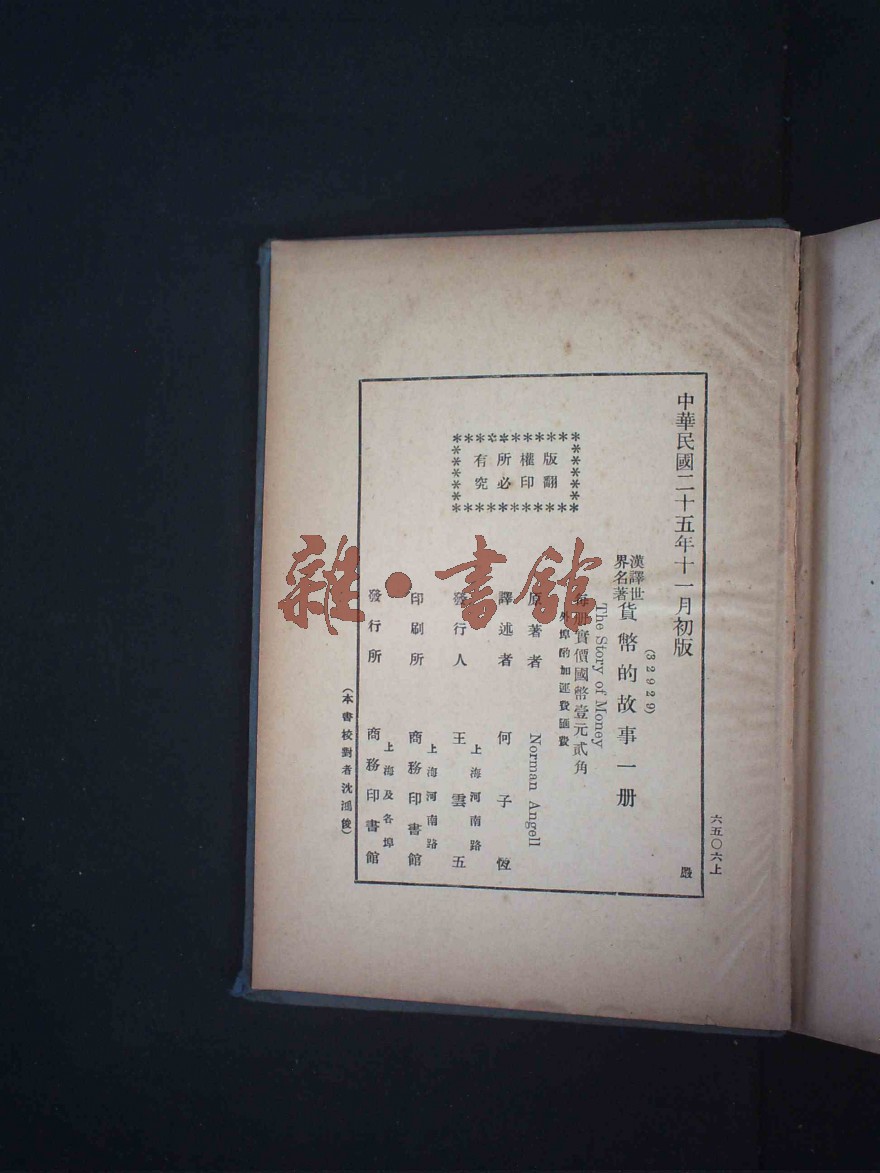 中華民國二十五年十一月初版
六五〇六上
嚴
版權所有
翻印必究
(32929)
漢譯世界名著
貨幣的故事一册
The Story of Money
每册實價國幣壹元貳角
外埠酌加運費匯費
原著者 Norman Angell
譯述者 何子恆
發行人 王雲五
上海河南路
印刷所 商務印書館
上海河南路
發行所 商務印書館
上海及各埠
(本書校對者沈鴻俊)
雜·書館